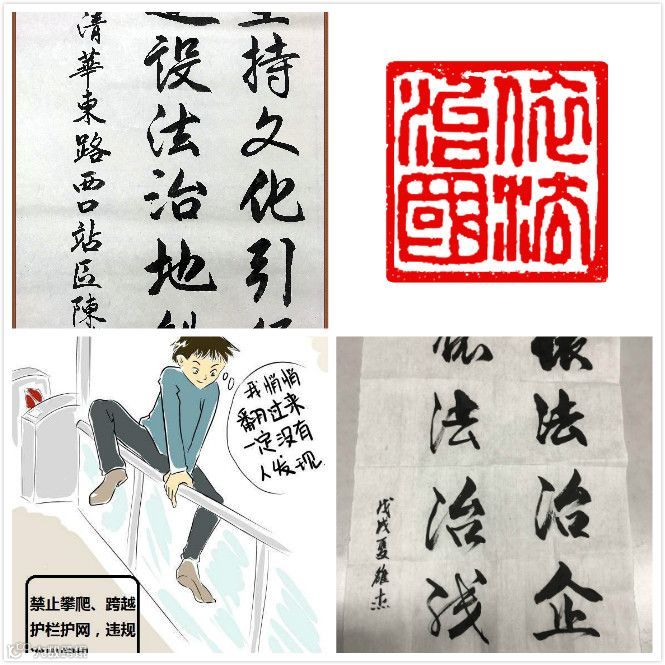 持文化引
设法治地
清華東路西口站區陳
依法
治國
我悄悄
翻过来
一定没有
人发现
禁止攀爬、跨越
护栏护网，违规
法治企
法治
戊戌夏雄杰